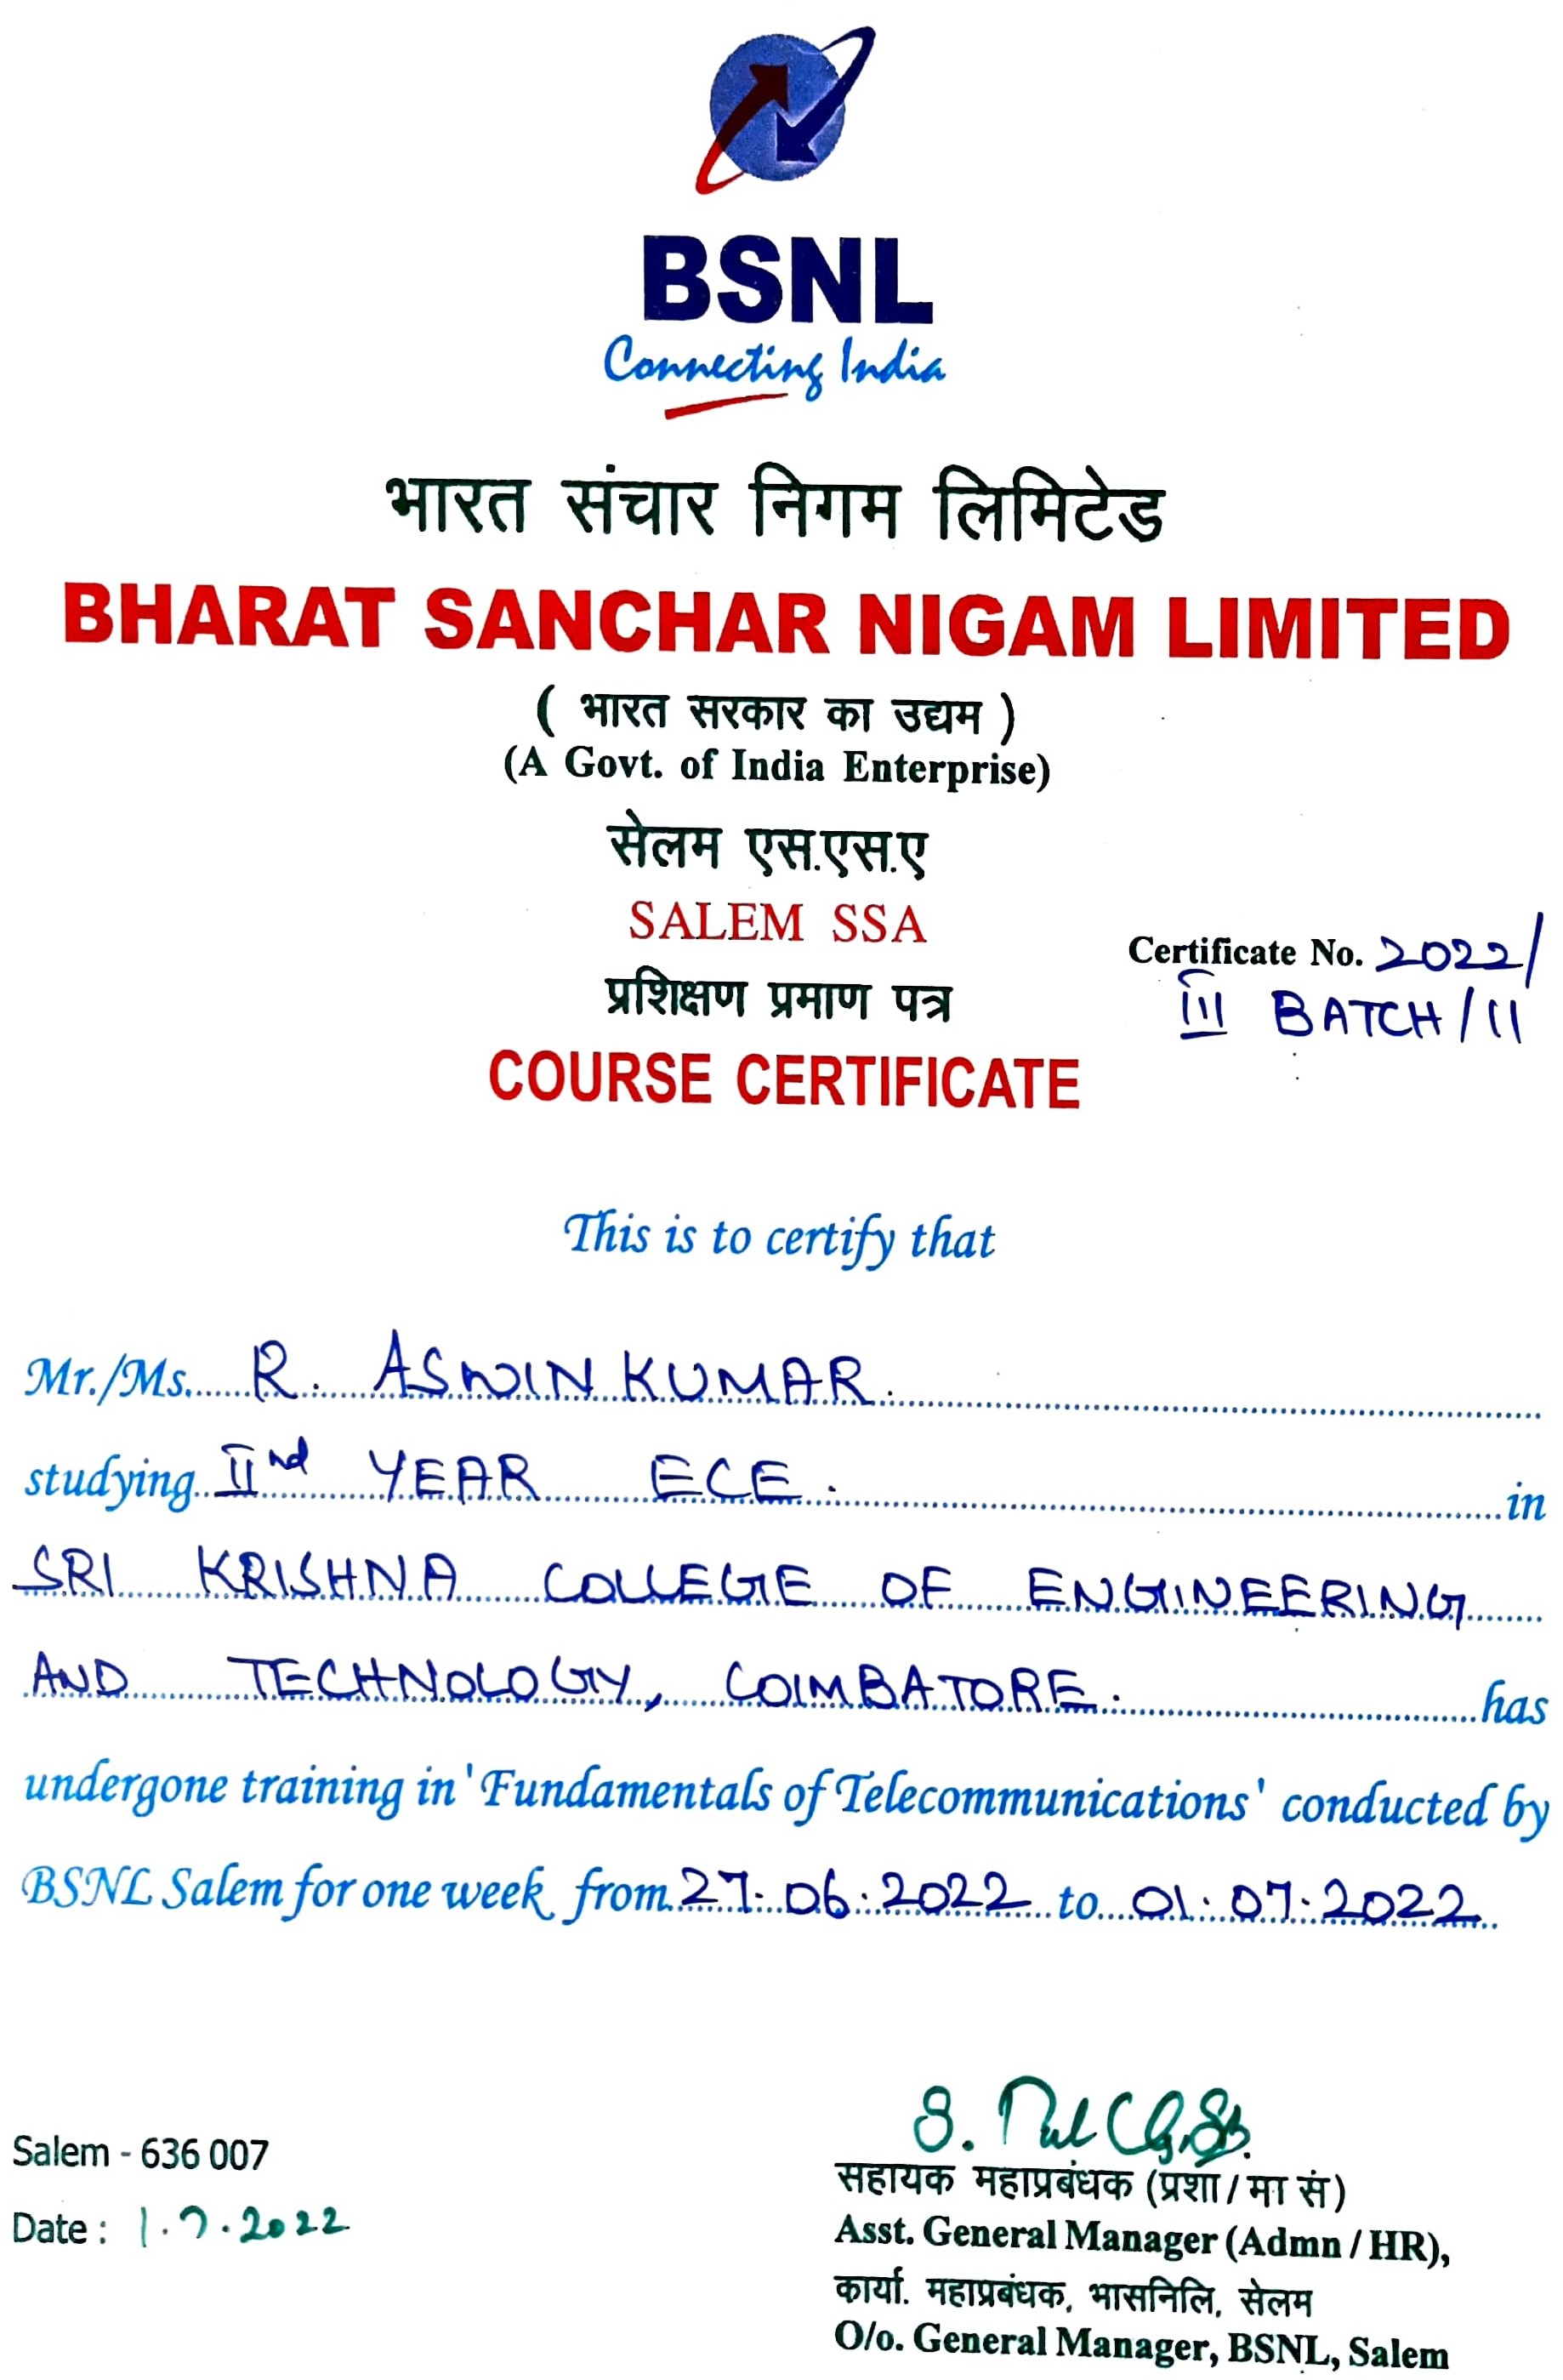 BSNL
Connecting India
भारत संचार निगम लिमिटेड
BHARAT SANCHAR NIGAM LIMITED
( भारत सरकार का उद्यम )
(A Govt. of India Enterprise)
सेलम एस.एस.ए
SALEM SSA
Certificate No. 2022/
III BATCH/11
प्रशिक्षण प्रमाण पत्र
COURSE CERTIFICATE
This is to certify that
Mr./Ms. R. ASWIN KUMAR.
studying IInd YEAR ECE. in
SRI KRISHNA COLLEGE OF ENGINEERING
AND TECHNOLOGY, COIMBATORE. has
undergone training in 'Fundamentals of Telecommunications' conducted by
BSNL Salem for one week from 27.06.2022 to 01.07.2022
Salem - 636 007
Date : 1.7.2022
सहायक महाप्रबंधक (प्रशा / मा सं)
Asst. General Manager (Admn / HR),
कार्या. महाप्रबंधक, भासनिलि, सेलम
O/o. General Manager, BSNL, Salem